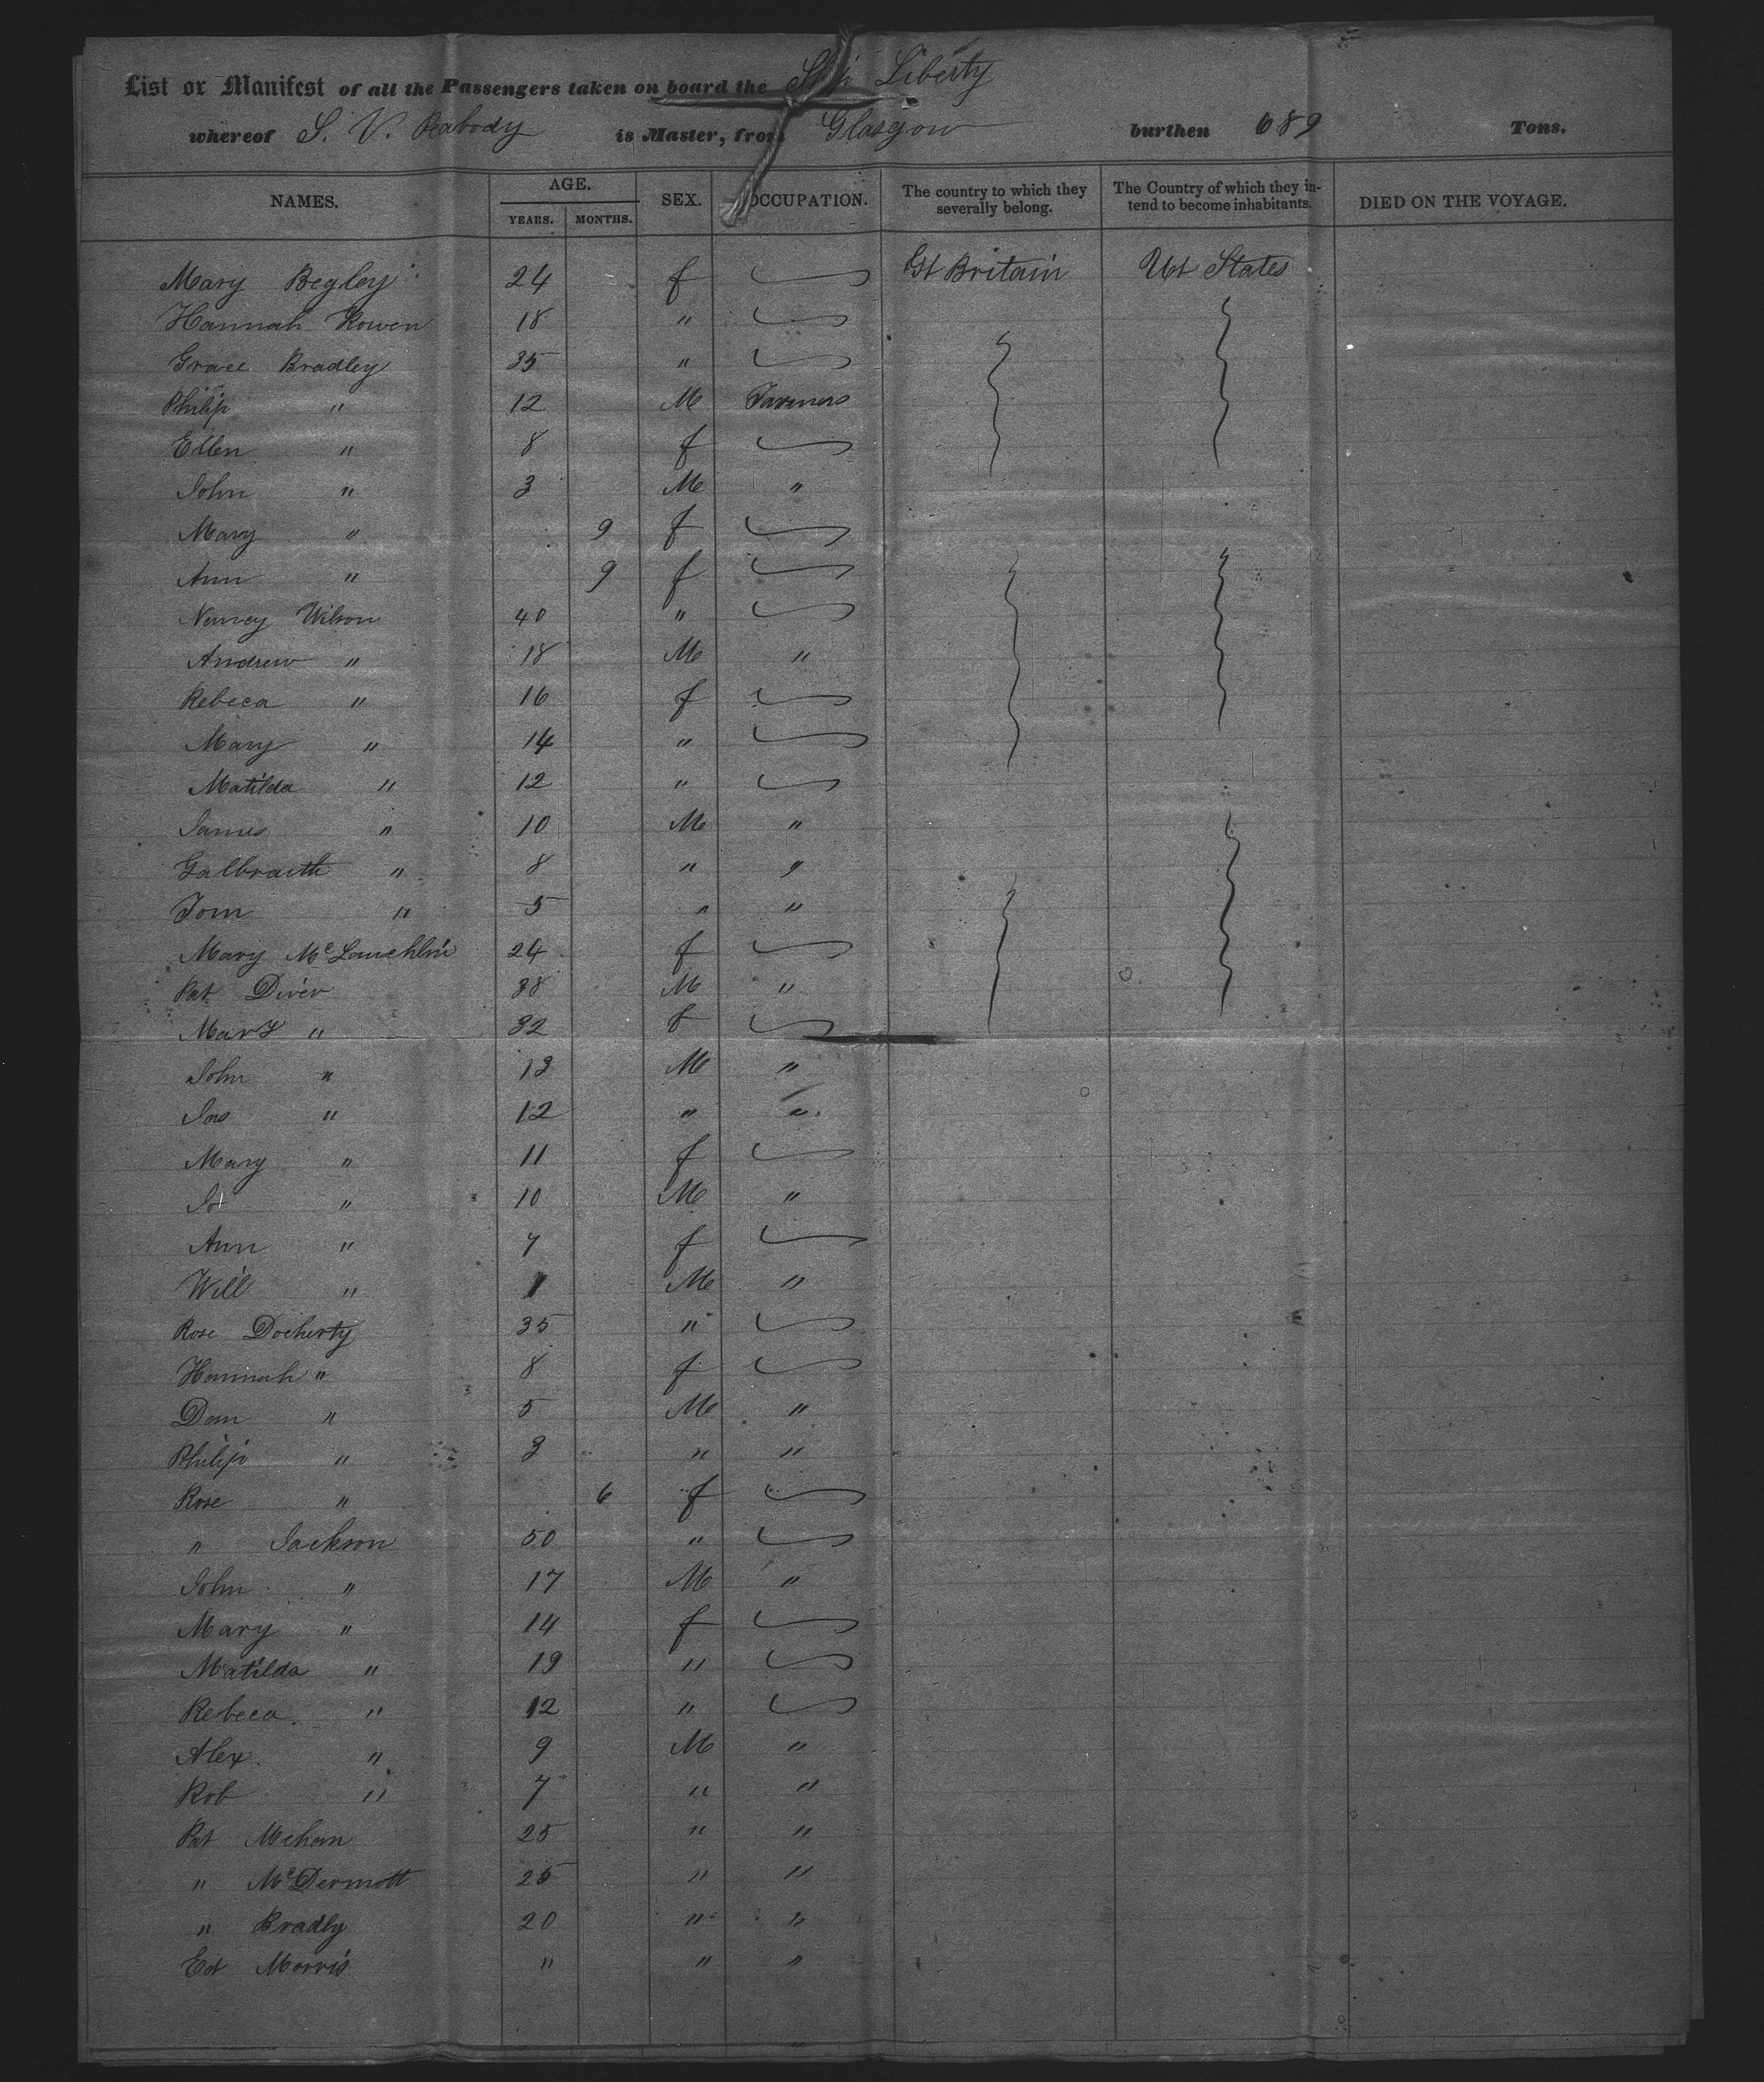 List or Manifest of all the Passengers taken on board the Ship Liberty
whereof S. V. Peabody is Master, from Glasgow burthen 689 Tons.
NAMES. AGE. YEARS. MONTHS. SEX. OCCUPATION. The country to which they severally belong. The Country of which they intend to become inhabitants. DIED ON THE VOYAGE.
Mary Begley 24 f Gt Britain Ut States
Hannah Rowen 18 "
Grace Bradley 35 "
Philip " 12 M Farmers
Ellen " 8 f
John " 3 M "
Mary " 9 f
Ann " 9 f
Nancy Wilson 40 "
Andrew " 18 M "
Rebeca " 16 f
Mary " 14 "
Matilda " 12 "
James " 10 M "
Galbraith " 8 " "
Tom " 5 " "
Mary McLauchlin 24 f
Pat Diver 38 M "
Mary " 32 f
John " 13 M "
Jas " 12 " "
Mary " 11 f
" 10 M "
Ann " 7 f
Will " 1 M "
Rose Docherty 35 "
Hannah " 8 f
Dan " 5 M "
Philip " 3 " "
Rose " 6 f
" Jackson 50 "
John " 17 M "
Mary " 14 f
Matilda " 19 "
Rebeca " 12 "
Alex " 9 M "
Rob " 7 " "
Pat Mehan 25 " "
" McDermott 25 " "
" Bradly 20 " "
Ed Morris " " "